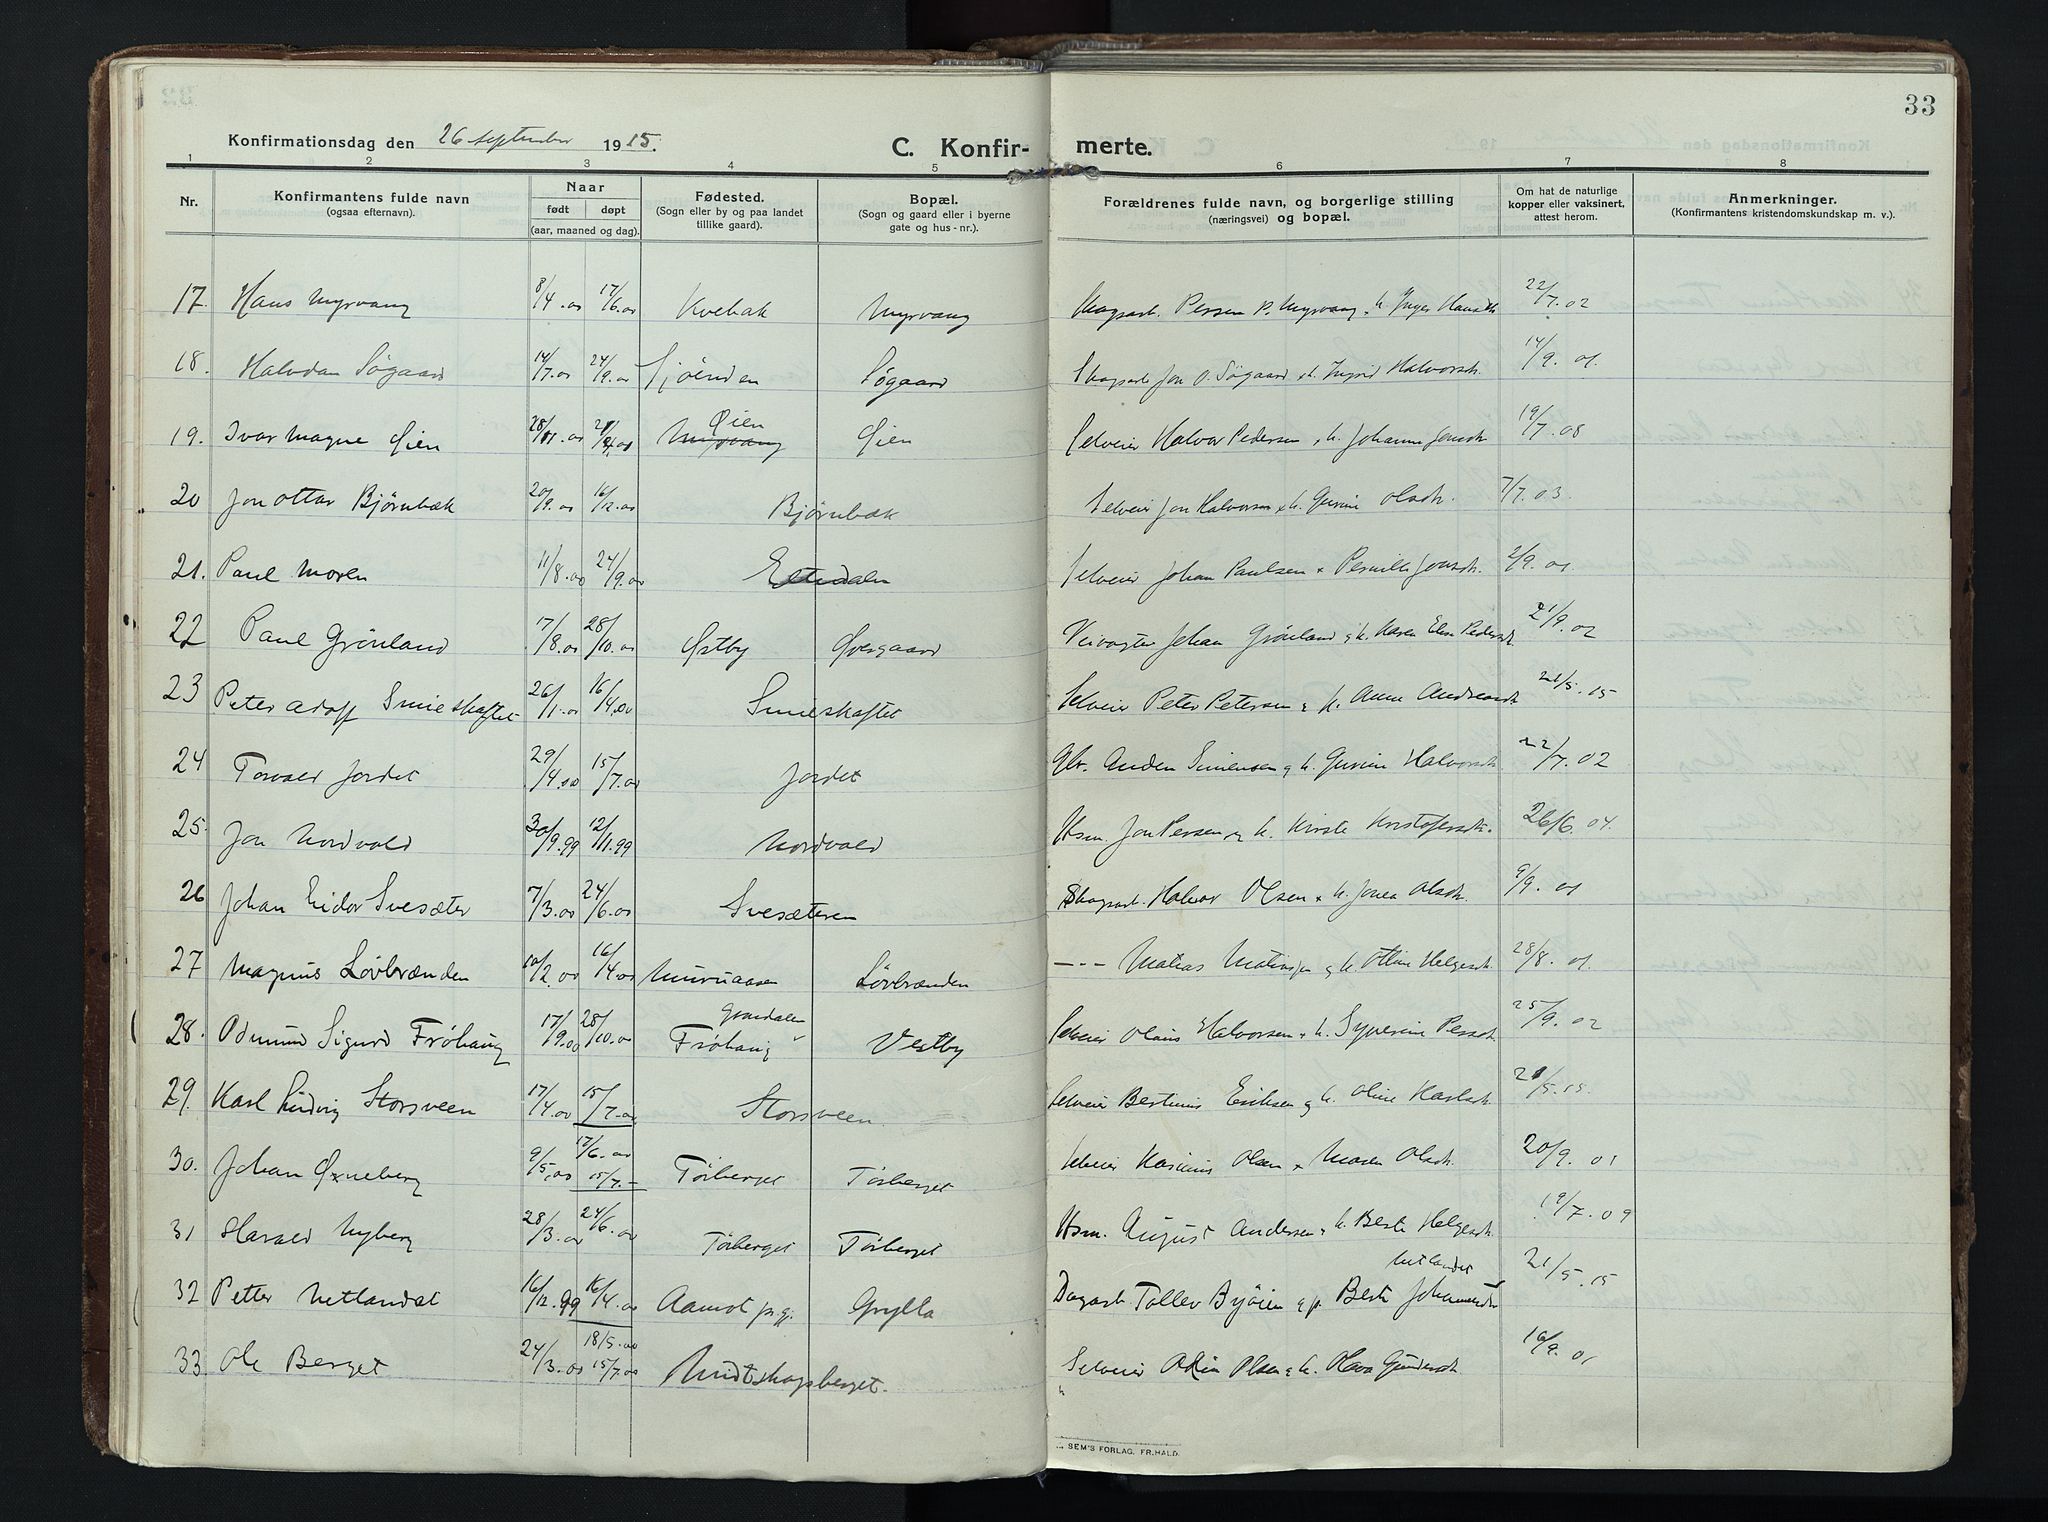 33
Konfirmationsdag den 26 september 1915.
C. Konfir- merte.
1 2 3 4 5 6 7 8
Nr.
Konfirmantens fulde navn
(ogsaa efternavn).
Naar
født døpt
(aar, maaned og dag).
Fødested.
(Sogn eller by og paa landet
tillike gaard).
Bopæl.
(Sogn og gaard eller i byerne
gate og hus-nr.).
Forældrenes fulde navn, og borgerlige stilling
(næringsvei) og bopæl.
Om hat de naturlige
kopper eller vaksinert,
attest herom.
Anmerkninger.
(Konfirmantens kristendomskundskap m. v.).
17. Hans Myrvang 8/4.00 17/6.00 Kvebak Myrvang Skogsarb. Persen p. Myrvang h. Inger Hansdtr 22/7.02
18. Halvdan Søgaard 14/7.00 24/9.00 Sjøenden Søgaard Skogsarb Jon O. Søgaard h. Ingrid Halvorsdtr. 14/9.01
19. Ivar Magne Øien 28/11.00 Myrvang Øien Øien Selveier Halvor Pedersen h. Johanne Jonsdtr 19/7.08
20 Jon Ottar Bjørnbæk 20/9.00 16/12.00 Bjørnbæk Selveier Jon Halvorsen h. Gurine Olsdtr. 7/7.03
21. Paul Moren 11/8.00 24/9.00 Selveier Johan Paulsen Pernille Jonsdtr. 2/9.01
22 Paul Grönland 17/8.00 28/10.00 Østby Øvergaard Veivogter Johan Grönland og h. Karen Elise Pedersdtr. 21/9.02
23 Peter Adolf Smieskaftet 26/1.00 16/4.00 Smieskaftet Selveier Peter Petersen h. Anne Andreasdtr 21/5.15
24 Torvald Jordet 29/4.00 15/7.00 Jordet Gbr. Simensen og h. Gurine Halvorsdtr 22/7.02
25. Jon Nordvold 30/9.99 12/11.99 Nordvold Hsm. Jon Persen og h. Kirste Kristofersdtr. 26/6.04.
26 Johan Eidor Svesæter 7/3.00 24/6.00 Svesæteren Skogsarb. Halvor Olsen h. Jonea Olsdtr. 9/9.01
27 Magnus Lövbrænden 10/2.00 16/4.00 Murnaasen Lövbrænden --- Matias Matiassen og h. Oline Helgesdtr. 28/8.01.
28. Odmund Sigurd Fröhaug 17/9.00 28/10.00 Grøndalen Fröhaug Vestby Selveier Olaus Halvorsen h. Syverine Persdtr. 25/9.02
29. Karl Ludvig Storsveen 17/4.00 15/7.00 Storsveen. Selveier Bertinius Eriksen og h. Oline Karlsdtr. 21/5.15.
30. Johan Øxneberg 9/5.00 17/6.00 15/7.- Törberget Törberget Selveier Kasinius Olsen Maren Olsdtr. 20/9.01
31 Harald Nyberg 28/3.00 24/6.00 Törberget Törberget Hsm. August Andersen h. Berte Helgesdtr. 19/7.09
32 Petter Netlandet 16/12.99 16/4.00 Aamot pr.gj. Grylla Dagarb. Tollev Byöien og p. Berte Johannesdtr Netlandet 21/5.15
33. Ole Berget 24/3.00 18/5.00 15/7.00 Midtskogsberget. Selveier Olsen og h. Gundersdtr. 16/9.01
SEM'S FORLAG, FR.HALD.